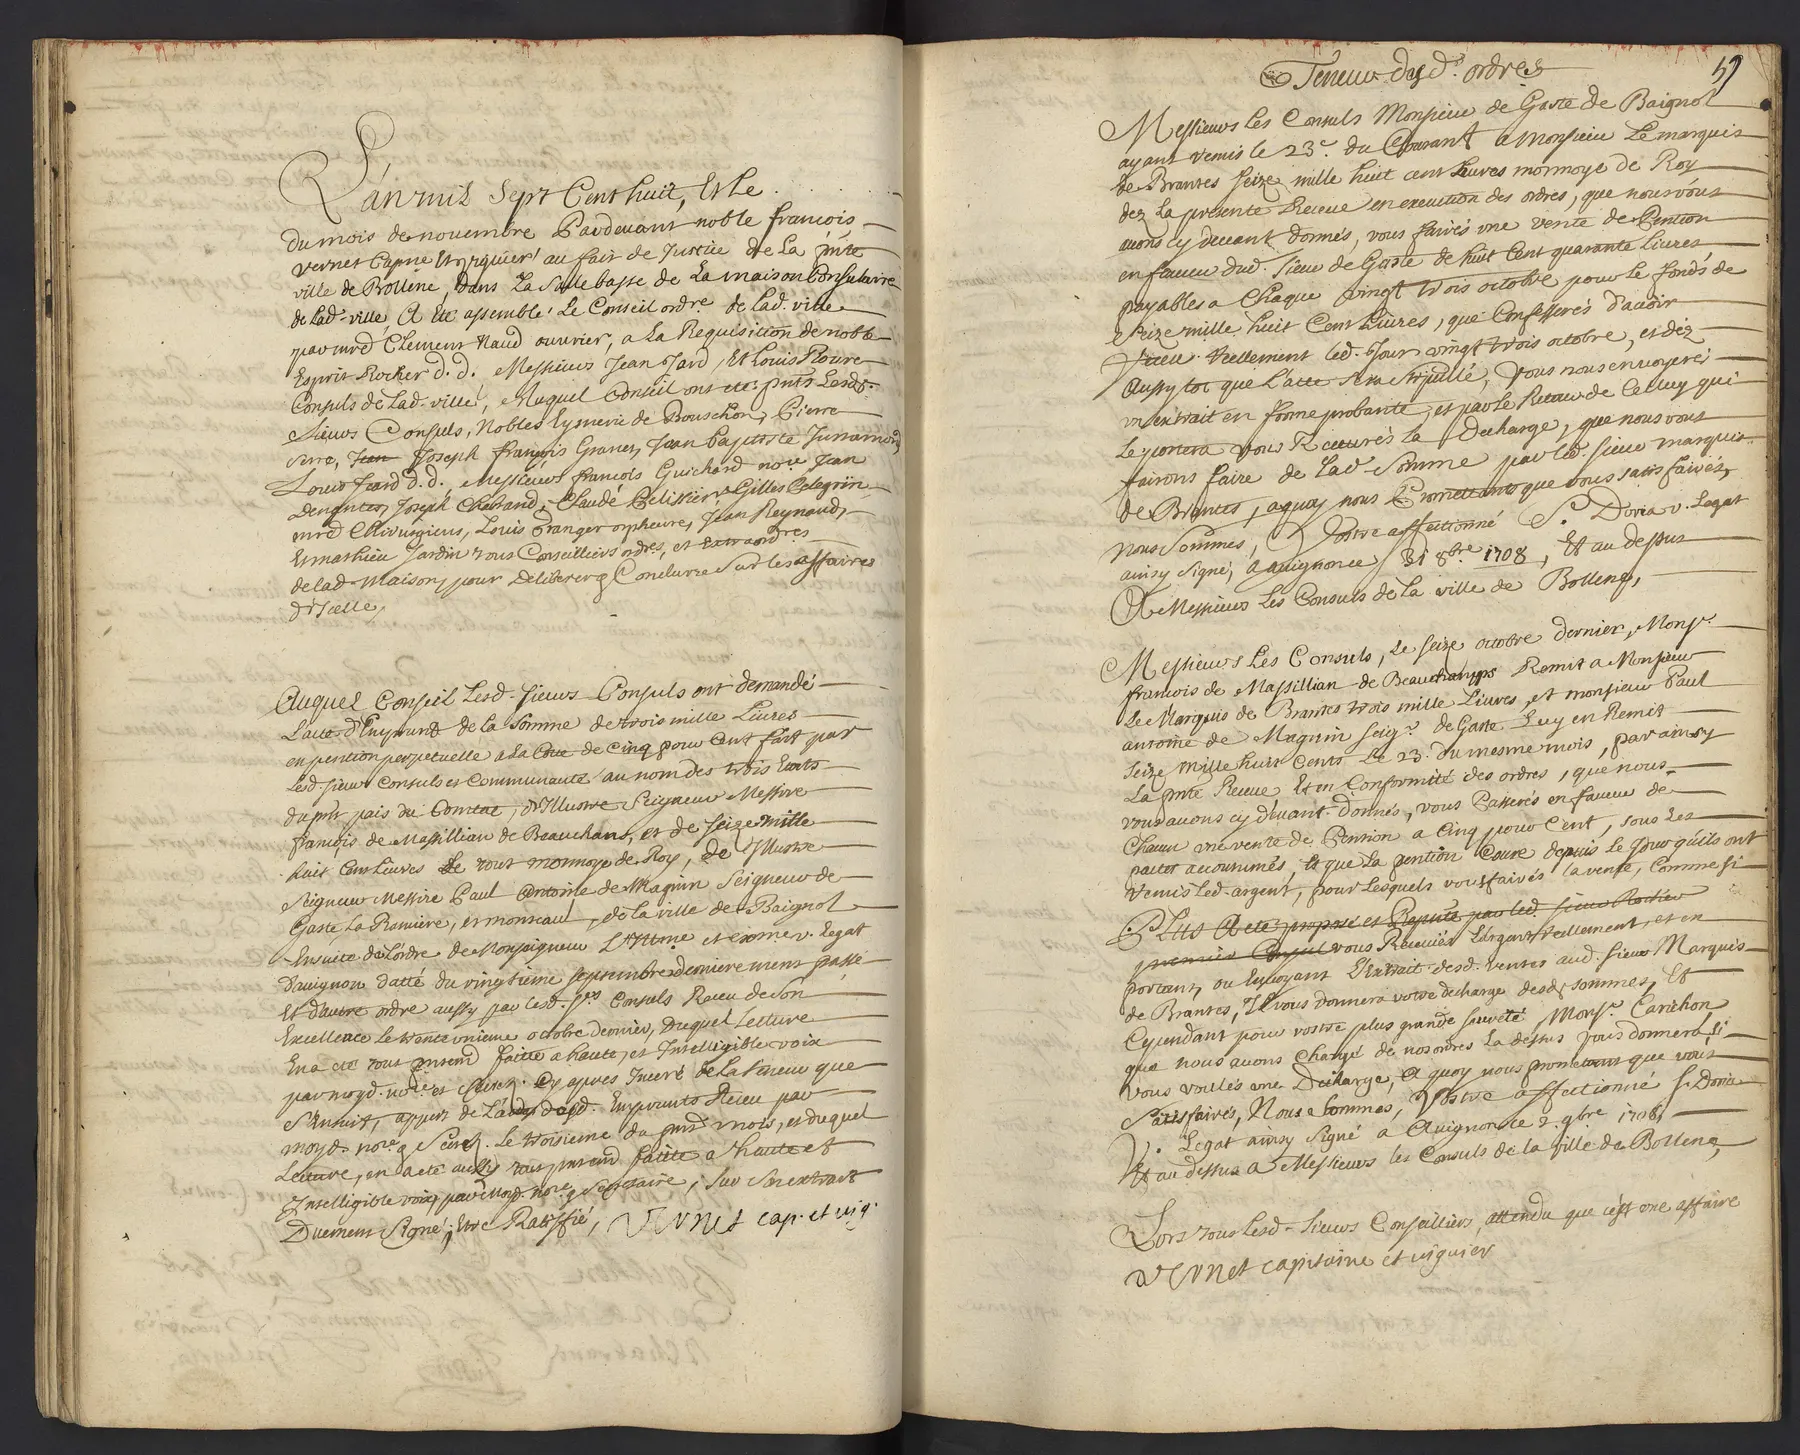 L'an mil Sept Cent huit, Et Le . . . . . .
du mois de novembre Pardevant noble francois
vernet Cap.ne Et viguier au fait de Justice de La p'nte
ville de Bollène, dans La Salle basse de La maison Consulaire
de Lad. ville, A été assemblé Le Conseil ord.re de Lad. ville
par mre Clement Naud ouvrier, a La Requisition de noble
Esprit Rocher d. d. Messieurs Jean Jard, Et Louis Roure
Consuls de Lad. ville, Auquel Conseil ont été p'nts Lesd.
Sieurs Consuls, Nobles Eymeric de Bouschon, Pierre
Serre, Jean Joseph françois Granet, Jean baptiste
Louis Jard d. d., Messieurs françois Guichard no.re Jean
Joseph Chabrand, Claude Pelissier, Gilles Pelegrin
mre Chirurgiens, Louis Granger orphevre, Jean Reynaud,
Et mathieu Jardin tous Conseillers ord.res, et Extraord.res
de lad. Maison, pour Deliberer & Conclurre Sur les affaires
d'Icelle,
Auquel Conseil Lesd. Sieurs Consuls ont demandé
L'acte d'Emprunt de la Somme de trois mille Livres
en pention perpetuelle a La Cotte de Cinq pour Cent fait par
Lesd. sieurs Consuls et Communauté au nom des trois Etats
du p'nt païs du Comtat, d'Illustre Seigneur Messire
françois de Massillian de Beauchans, et de Seize mille
huit Cent Livres Le tout monnoye de Roy, de Illustre
Seigneur Messire Paul Antoine de Magnin Seigneur de
Gaste, La Ramiere, et monteau, de la ville de Baignol
Ensuite de L'ordre de Monseigneur L'Ill.me et ex.me v. Legat
d'avignon datté du vingtieme Septembre dernierement passé
Et d'autre ordre aussy par Lesd. S.rs Consuls Receu de Son
Excellence Le trente unieme octobre dernier, duquel Lecture
En a été tout presentemt faitte a haute, et Intelligible voix
par moyd. no.re et Secret. Cy apres Inseré de La teneur que
S'Ensuit, appert de L'acte dud. Emprunts Receu par
moyd. no.re & Secret. Le troisieme du p'nt mois, et duquel
Lecture, en a eté aussy tout presentemt faitte a haute et
Intelligible voix par moyd. no.re & Secretaire, Sur Son extrait
Duement Signé, Etre Ratiffié, VERNET cap. et vig.
59
Teneur desd.s ordres
Messieurs Les Consuls Monsieur de Gaste de Baignol
ayant remis le 23.e du Courant a Monsieur Le marquis
de Brantes Seize mille huit cent Livres monnoye de Roy
dez La presente Receue en execution des ordres, que nous vous
avons cy devant donnés, vous fairés une vente de Pention
en faveur dud. Sieur de Gaste de huit Cent quarante Livres
payables a Chaque vingt trois octobre pour Le fonds de
Seize mille huit Cent Livres, que Confesserés d'avoir
Receu reellement led. Jour vingt trois octobre, et dez
Aussy tot que L'acte Sera Stipullé, vous nous envoyerés
un extrait en forme probante, et par Le Retour de Celluy qui
Le portera vous Recevrés La Decharge, que nous vous
fairons faire de Lad. Somme par led. Sieur marquis
de Brantes, a quoy nous Promettants que vous satisfairés,
nous Sommes, Votre affectionné S. Doria v. Legat
ainsy signé, a avignon ce 31 8bre 1708, Et au dessus
A Messieurs Les Consuls de La ville de Bollene,
Messieurs Les Consuls, Le Seize octobre dernier, Mons.r
françois de Massillian de Beauchamps Remit a Monsieur
Le Marquis de Brantes trois mille Livres, et monsieur Paul
antoine de Magnin Seig.r de Gaste Luy en Remit
Seize mille huit Cents Le 23. du mesme mois, par ainsy
La p'nte Receue Et en Conformité des ordres, que nous
vous avons cy devant donnés, vous Passerés en faveur de
Chacun une vente de Pention a Cinq pour Cent, sous Les
pactes accoutumés, Et que La pention Coure depuis Le Jour qu'ils ont
remis Led. argent, pour Lesquels vous fairés la vente, Comme si
Plus A eté proposé et Reputé par led. Sieur Rocher
premier Consul vous Receviés L'argent reellement, et en
portant, ou Envoyant L'Extrait desd. ventes aud. Sieur Marquis
de Brantes, Il vous donnera votre decharge desd. sommes, Et
Cependant pour vostre plus grande seureté Mons.r Carichon
que nous avons Chargé de nos ordres La dessus vous donnera Si
vous voulés une Decharge, A quoy nous promettant que vous
Satisfairés, Nous Sommes, Vostre affectionné S. Doria
V. Legat ainsy Signé a Avignon le 2. 9bre 1708,
Et au dessus A Messieurs les Consuls de la ville de Bollene,
Lors tous Lesd. Sieurs Conseilliers, attendu que c'est une affaire
VERNET capitaine et viguier